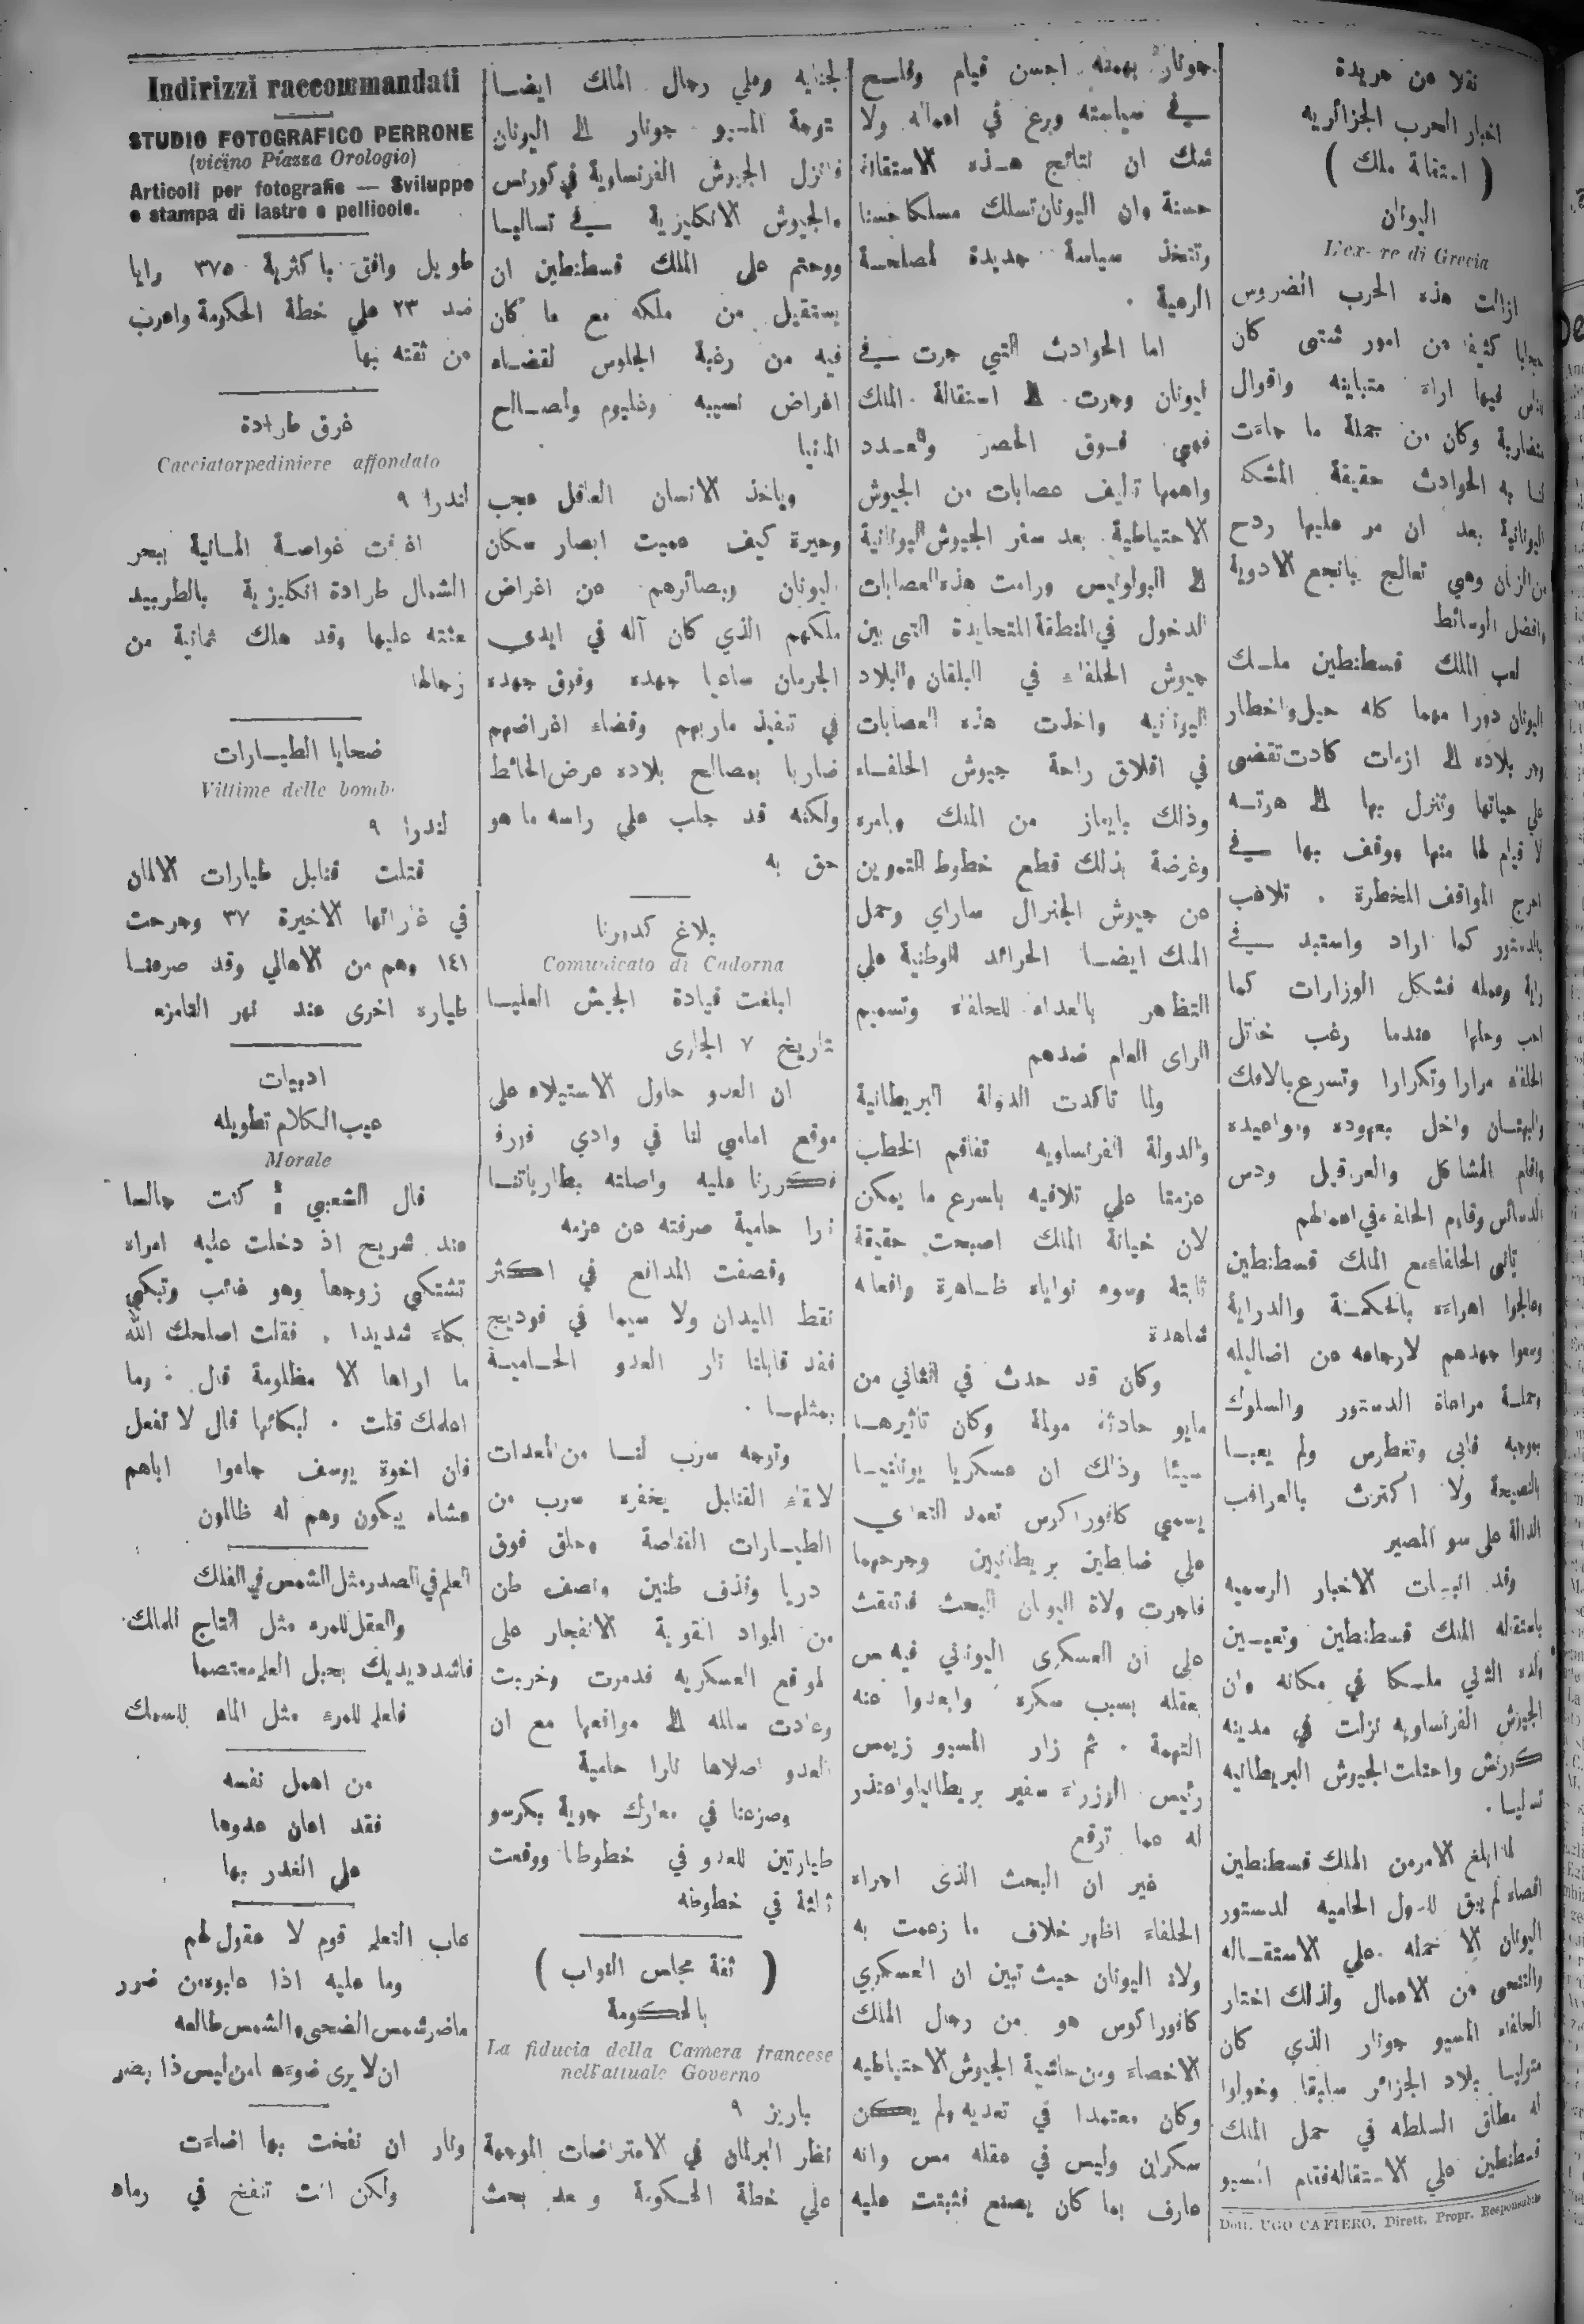 نقلا عن جريدة
اخبار الحرب الجزائريه
( استقالة ملك )
اليونان
L'ex- re di Grecia
ازالت هذه الحرب الضروس
حجابا كثيفا من امور شتى كان
للناس فيها اراء متباينه واقوال
متضاربة وكان من جملة ما جاءت
لنا به الحوادث حقيقة المشكلة
اليونانية بعد ان مر عليها ردح
من الزمان وهي تعالج بانجع الادوية
وافضل الوسائط
لعب الملك قسطنطين ملك
اليونان دورا مهما كله حيل واخطار
وجر بلاده الى ازمات كادت تقضى
علي حياتها وتنزل بها الى هوتــه
لا قيام لها منها ووقف بها في
احرج المواقف المخطرة . تلاعب
بالدستور كما اراد واستبد في
رايه وعمله فشكل الوزارات كما
احب وحلها عندما رغب خاتل
الحلفاء مرارا وتكرارا وتسرع بالافك
والبهتان واخل بعهوده ومواعيده
واقام المشاكل والعراقيل ودس
الدسائس وقاوم الحلفاء في اعمالهم
تانى الحلفاء مع الملك قسطنطين
وعالجوا اهواءه بالحكمة والدراية
وسعوا جهدهم لارجاعه عن اضاليله
وحملــه مراعاة الدستور والسلوك
بموجبه فابى وتغطرس ولم يعبــا
بالنصيحة ولا اكترث بالعواقب
الدالة على سو المصير
وقد انبــات الاخبار الرسميه
باستقاله الملك قسطنطين وتعيــين
ولده الثاني ملــكا في مكانه وان
الجيوش الفرنساويه نزلت في مدينه
كورنش واحتلت الجيوش البريطانيه
تساليا .
لما ابلغ الامر من الملك قسطنطين
اقصاه لم يبق للدول الحاميه لدستور
اليونان الا حمله علي الاستقــاله
والتنحى من الاعمال ولذلك اختار
الحلفاء المسيو جونار الذي كان
متوليــا بلاد الجزائر سابقا وخولوا
له مطلق السلطه في حمل الملك
قسطنطين علي الاستقاله فقام المسيو
Dott. UGO CAFIERO, Dirett. Propr. Responsabile
جونار بهمته احسن قيام وفلــح
في سياسته وبرع في اعماله ولا
شك ان نتائج هــذه الاستقالة
حسنة وان اليونان تسلك مسلكا حسنا
وتتخذ سياسة جديدة لمصلحــة
الرعية .
اما الحوادث التي جرت في
اليونان وجرت الى استقالة الملك
فهي فــوق الحصر والعــدد
واهمها تاليف عصابات من الجيوش
الاحتياطية بعد سفر الجيوش اليونانية
الى البولونيس ورامت هذه العصابات
الدخول في المنطقة المتحايدة التى بين
جيوش الحلفاء في البلقان والبلاد
اليونانيه واخذت هذه العصابات
في اقلاق راحة جيوش الحلفــاء
وذلك بايعاز من الملك وبامره
وغرضة بذلك قطع خطوط التموين
عن جيوش الجنرال ساراي وحمل
الملك ايضــا الجرائد الوطنية علي
التظاهر بالعداء للحلفاء وتسميم
الراى العام ضدهم
ولما تاكدت الدولة البريطانية
والدولة الفرنساويه تفاقم الخطب
عزمتا علي تلافيه باسرع ما يمكن
لان خيانة الملك اصبحت حقيقة
ثابتة وسوء نواياه ظــاهرة وافعاله
شاهدة
وكان قد حدث في الثاني من
مايو حادثة مولمة وكان تاثيرهــا
سيئا وذلك ان عسكريا يونانيــا
يسمي كافوراكوس تعمد التعدي
علي ضابطين بريطانيين وجرحهما
فاجرت ولاة اليونان البحث فاتفقت
على ان العسكرى اليوناني فيه مس
بعقله بسبب سكره وابعدوا عنه
التهمة . ثم زار المسيو زيمس
رئيس الوزراء سفير بريطانيا واعتذر
له عما توقع
غير ان البحث الذى اجراه
الحلفاء اظهر خلاف ما زعمت به
ولاة اليونان حيث تبين ان العسكري
كافوراكوس هو من رجال الملك
الاخصاء ومن حاشية الجيوش الاحتياطيه
وكان معتمدا في تعديه ولم يكن
سكران وليس في عقله مس وانه
عارف بما كان يصنع فثبتت عليه
لجنايه وعلي رجال الملك ايضــا
توجه المسيو جونار الى اليونان
فانزل الجيوش الفرنساوية في كورنس
والجيوش الانكليزية في تساليــا
ووحتم على الملك قسطنطين ان
يستقيل من ملكه مع ما كان
فيه من رغبة الجلوس لقضــاء
اغراض نسيبه وغليوم ولصــالح
المانيا
وياخذ الانسان العاقل عجب
وحيرة كيف عميت ابصار سكان
اليونان وبصائرهم عن اغراض
ملكهم الذي كان آلة في ايدى
الجرمان ساعيا جهده وفوق جهده
في تنفيذ ماربهم وقضاء اغراضهم
ضاربا بمصالح بلاده عرض الحائط
ولكنه قد جلب علي راسه ما هو
حق به
بلاغ كدورنا
Comunicato di Cadorna
ابلغت قيادة الجيش العليــا
تاريخ ٧ الجارى
ان العدو حاول الاستيلاء على
موقع امامي لنا في وادي
فــكررنا عليه واصلته بطارياتنــا
نارا حامية صرفته عن عزمه
وقصفت المدافع في اكثر
نقط الميدان ولا سيما في فوديج
فقد قابلنا نار العدو الحــاميــة
بمثلهــا .
وتوجه سرب لنــا من المعدات
لالقاء القنابل يخفره سرب من
الطيــارات القناصة وحلق فوق
دريا وقذف طنين ونصف طن
من المواد القوية الانفجار على
لمواقع العسكريه فدمرت وخربت
وعادت سالمه الى مواقعها مع ان
العدو اصلاها نارا حامية
وصرعنا في معارك جوية بكرسو
طيارتين للعدو في خطوطنا ووقعت
ثالثة في خطوطه
( ثقة مجلس النواب )
بالحــكومة
La fiducia della Camera francese
nell'attuale Governo
باريز ٩
نظر البرلمان في الاعتراضات الموجهة
علي خطة الحــكومة وبعد بحث
Indirizzi raccommandati
STUDIO FOTOGRAFICO PERRONE
(vicino Piazza Orologio)
Articoli per fotografie — Sviluppo
e stampa di lastre e pellicole.
طويل وافق باكثرية ٣٧٥ رايا
ضد ٢٣ علي خطة الحكومة واعرب
عن ثقته بها
غرق طرادة
Cacciatorpediniere affondato
لندرا ٩
اغرقت غواصــة المــانية ببحر
الشمال طرادة انكليزية بالطربيد
بعثته عليها وقد هلك ثمانية من
رجالها
ضحايا الطيــارات
Vittime delle bomb.
لندرا ٩
قتلت قنابل طيارات الالمان
في غاراتها الاخيرة ٣٧ وجرحت
١٤١ وهم من الاهالي وقد صرعنــا
طياره اخرى عند نهر التامزه
ادبيات
عيب الــكلام تطويله
Morale
قال الشعبي : كنت جالسا
عند شريح اذ دخلت عليه امراه
تشتكي زوجها وهو غائب وتبكي
بكاء شديدا . فقلت اصلحك الله
ما اراها الا مظلومة قال : وما
اعلمك قلت . لبكائها قال لا تفعل
فان اخوة يوسف جاءوا اباهم
عشاء يبكون وهم له ظالمون
العلم في الصدر مثل الشمس في الفلك
والعقل للمرء مثل التاج للملك
فاشدد يديك بحبل العلم معتصما
فالعلم للمرء مثل الماء للسمك
من اهمل نفسه
فقد اعان عدوها
على الغدر بها
عاب التعلم قوم لا عقول لهم
وما عليه اذا عابوه من ضرر
ما ضر شمس الضحى والشمس طالعه
ان لا يرى ضوءها من ليس ذا بصر
ونار ان نفخت بها اضاءت
ولكن انت تنفخ في رماد